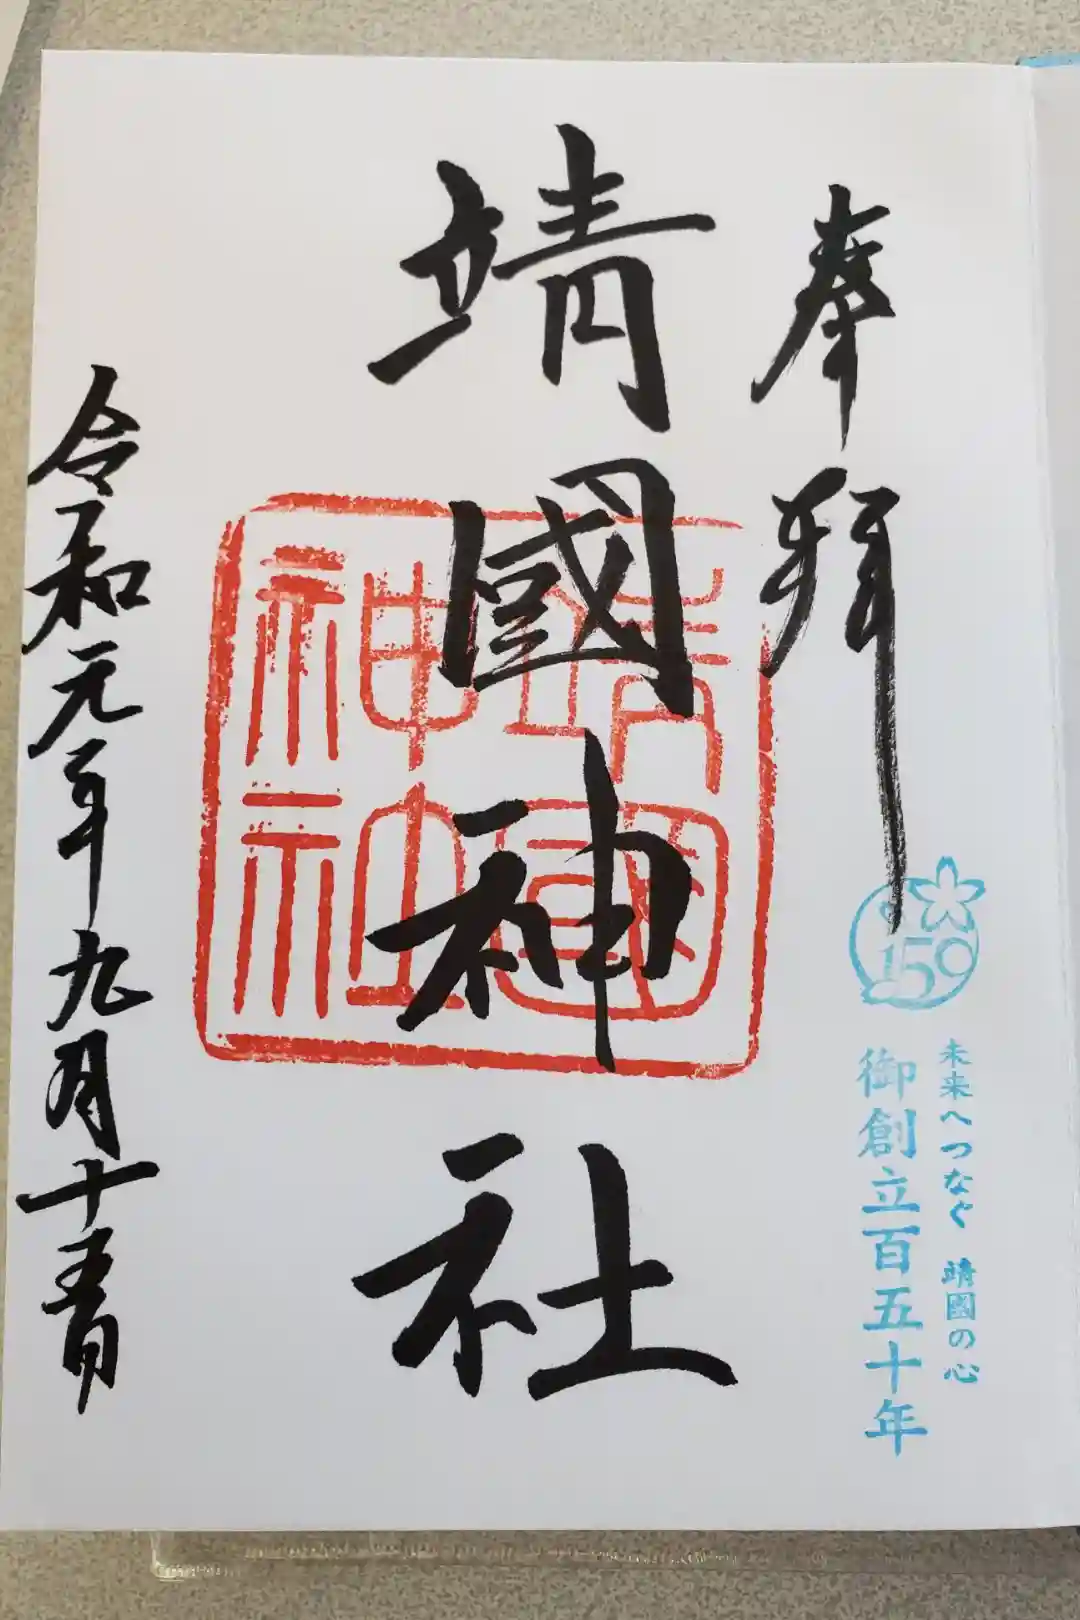 奉拜
150
未来へつなぐ 靖國の心
御創立百五十年
靖國神社
靖國神社
令和元年九月十五日